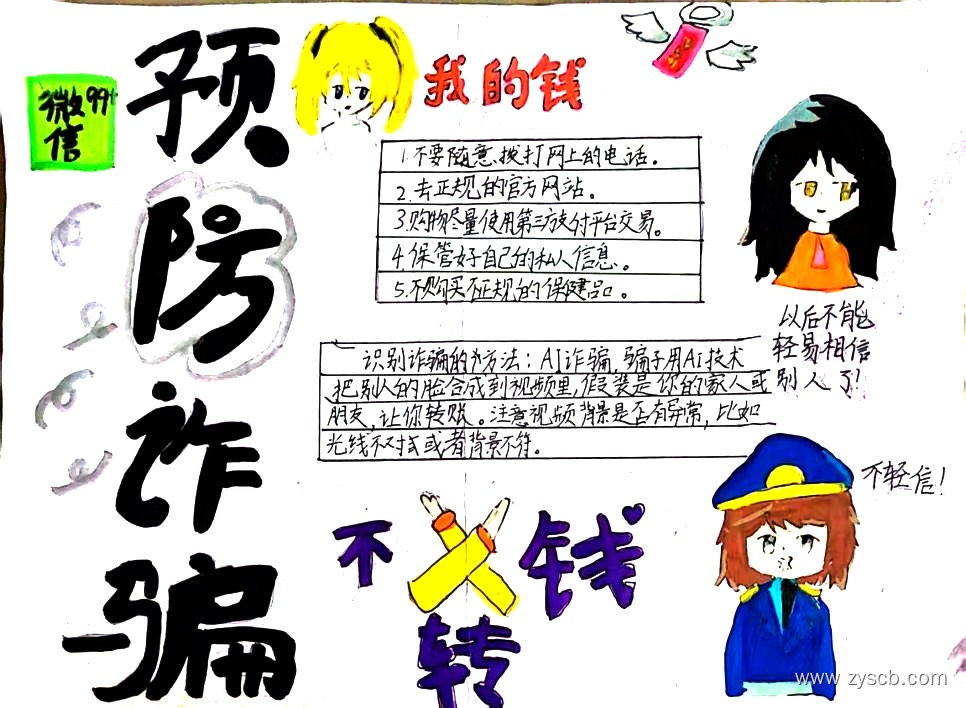 预防诈骗
微信
99+
我的钱
1.不要随意拨打网上的电话。
2.去正规的官方网站。
3.购物尽量使用第三方支付平台交易。
4.保管好自己的私人信息。
5.不购买不正规的保健品。
识别诈骗的方法:AI诈骗,骗子用AI技术
把别人的脸合成到视频里,假装是你的家人或
朋友,让你转账。注意视频背景是否有异常,比如
光线不对或者背景不符。
以后不能
轻易相信
别人了!
不轻信!
不 钱
转
www.zyscb.com